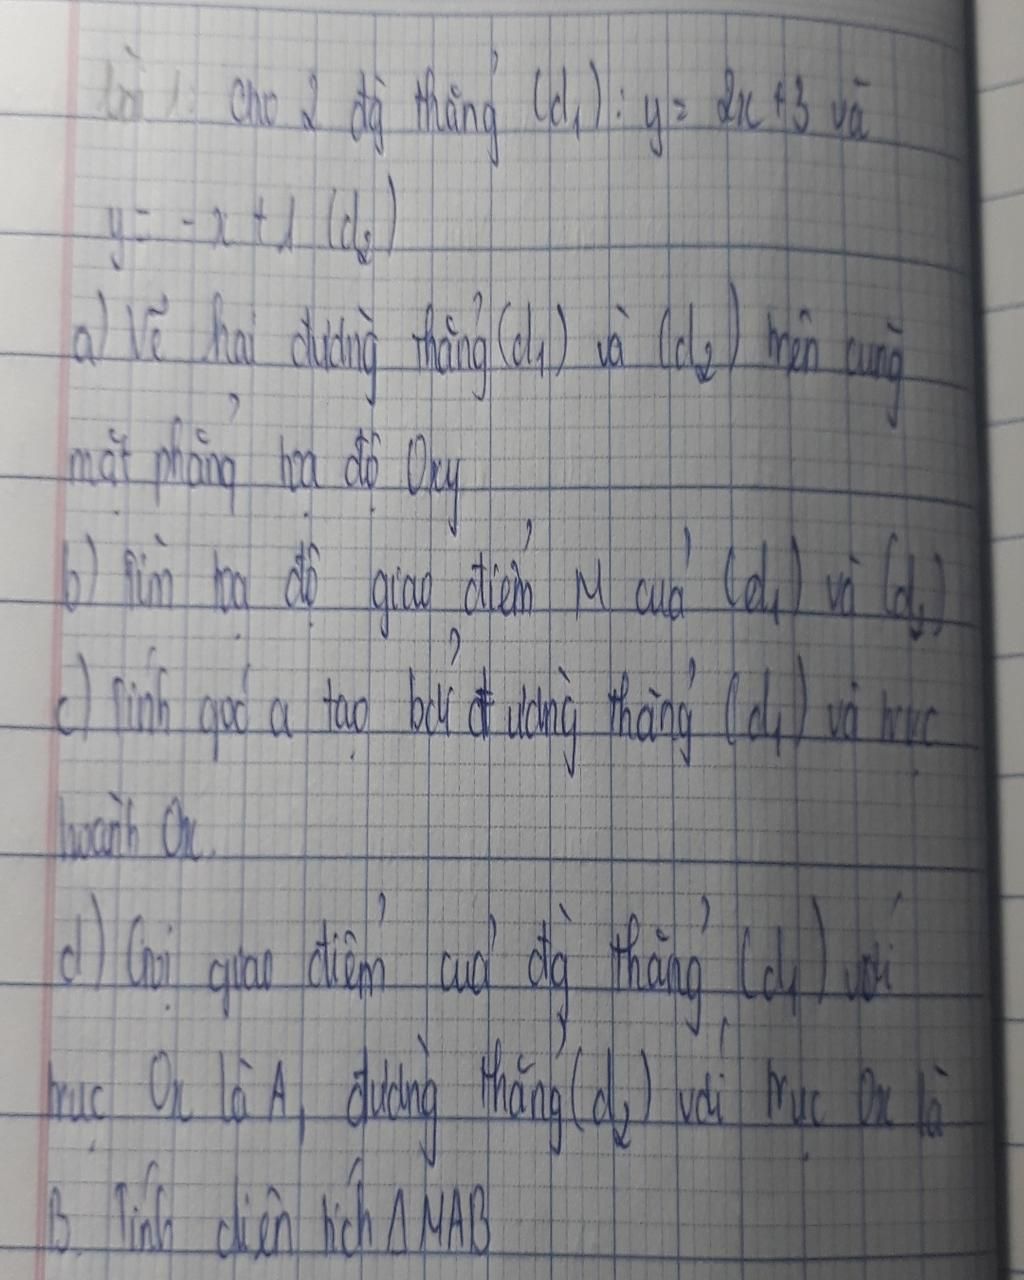 bài 1: cho 2 đg thẳng (d₁): y = 2x + 3 và
y = -x + 1 (d₂)
a) Vẽ hai đường thẳng (d₁) và (d₂) trên cùng
mặt phẳng tọa độ Oxy
b) Tìm toạ độ giao điểm M của (d₁) và (d₂)
c) Tính góc a tạo bởi đường thẳng (d₁) và trục
hoành Ox.
d) Gọi giao điểm của đg thẳng (d₁) với
trục Ox là A, đường thẳng (d₂) với trục Ox là
B. Tính diện tích Δ MAB